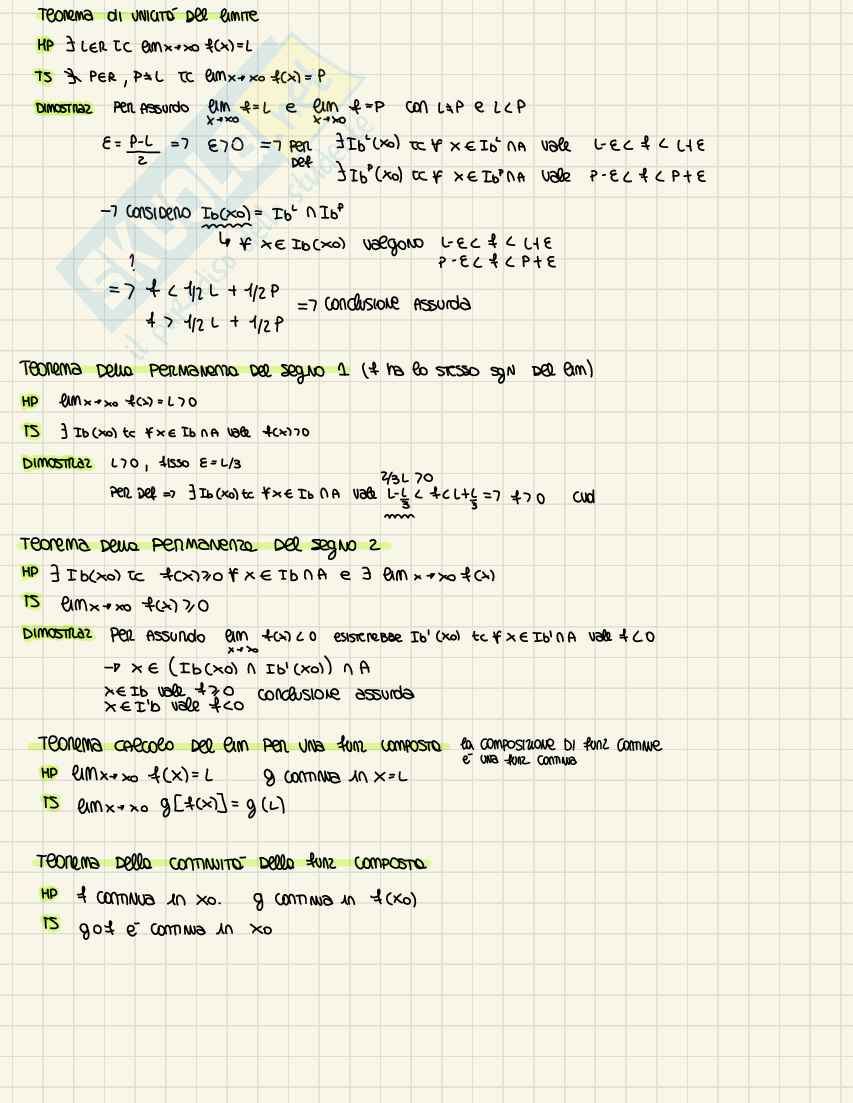 Teorema di unicità del limite
HP ∃ L∈R tc lim x→x0 f(x)=L
TS ∄ P∈R, P≠L tc lim x→x0 f(x)=P
DIMOSTRAZ Per assurdo lim x→x0 f=L e lim x→x0 f=P con L≠P e L<P
ε=(P-L)/2 => ε>0 => per def ∃Ib^L(x0) tc ∀ x∈Ib^L∩A vale L-ε< f < L+ε
∃Ib^P(x0) tc ∀ x∈Ib^P∩A vale P-ε< f < P+ε
→ considero Ib(x0)= Ib^L ∩ Ib^P
↳ ∀ x∈Ib(x0) valgono L-ε< f < L+ε
P-ε< f < P+ε
?
=> f < 1/2 L + 1/2 P
f > 1/2 L + 1/2 P => conclusione assurda
Teorema della permanenza del segno 1 (f ha lo stesso sgn del lim)
HP lim x→x0 f(x)=L>0
TS ∃ Ib(x0) tc ∀x∈ Ib∩A vale f(x)>0
DIMOSTRAZ L>0, fisso ε=L/3
2/3L >0
Per def => ∃Ib(x0) tc ∀x∈Ib∩A vale L-L/3 < f<L+L/3 => f>0 cvd
Teorema della permanenza del segno 2
HP ∃ Ib(x0) tc f(x)≥0 ∀ x∈Ib∩A e ∃ lim x→x0 f(x)
TS lim x→x0 f(x)≥0
DIMOSTRAZ Per assurdo lim x→x0 f(x)<0 esisterebbe Ib'(x0) tc ∀x∈Ib'∩A vale f<0
→ x∈ (Ib(x0) ∩ Ib'(x0)) ∩ A
x∈Ib vale f≥0 conclusione assurda
x∈I'b vale f<0
Teorema calcolo del lim per una funz composta la composizione di funz continue
è una funz continua
HP lim x→x0 f(x)=L g continua in x=L
TS lim x→x0 g[f(x)]=g(L)
Teorema della continuità della funz composta
HP f continua in x0. g continua in f(x0)
TS g∘f è continua in x0
SKUOLA.net
il paradiso dello studente